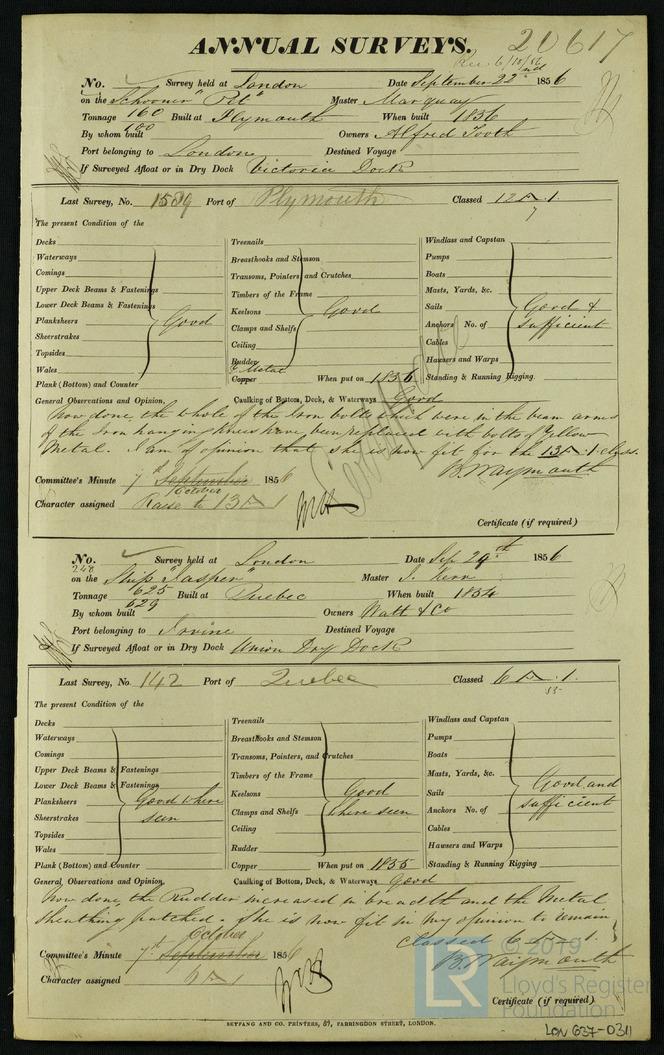 ANNUAL SURVEYS. 20617
Rec 6/10/56
No. Survey held at London Date September 22nd 1856
on the Schooner "Pet" Master Marquay
Tonnage 160 Built at Plymouth When built 1836
180
By whom built Owners Alfred Tooth
Port belonging to London Destined Voyage
If Surveyed Afloat or in Dry Dock Victoria Dock
Last Survey, No. 1589 Port of Plymouth Classed 12 A.1
7
The present Condition of the
Decks Treenails Windlass and Capstan
Waterways Breasthooks and Stemson Pumps
Comings Transoms, Pointers and Crutches Boats
Upper Deck Beams & Fastenings Timbers of the Frame Masts, Yards, &c.
Lower Deck Beams & Fastenings Keelsons Good Sails Good &
Planksheers Good Clamps and Shelfs Anchors No. of sufficient
Sheerstrakes Ceiling Cables
Topsides Rudder Hawsers and Warps
Wales Y Metal
Plank (Bottom) and Counter Copper When put on 1856 Standing & Running Rigging
General Observations and Opinion, Caulking of Bottom, Deck, & Waterways Good
Now done, the whole of the Iron bolts which were in the beam arms
of the Iron hanging knees have been replaced with bolts of Yellow
Metal. I am of opinion that she is now fit for the 13 A.1 Class.
B. Waymouth
Committee's Minute 7th September 1856
October
Character assigned Raise to 13 A 1
Certificate (if required)
No. Survey held at London Date Sep 29th 1856
248
on the Ship "Jasper" Master J. Kern
Tonnage 625 Built at Quebec When built 1854
629
By whom built Owners Watt & Co
Port belonging to Irvine Destined Voyage
If Surveyed Afloat or in Dry Dock Union Dry Dock
Last Survey, No. 142 Port of Quebec Classed 6 A.1.
55
The present Condition of the
Decks Treenails Windlass and Capstan
Waterways Breasthooks and Stemson Pumps
Comings Transoms, Pointers, and Crutches Boats
Upper Deck Beams & Fastenings Timbers of the Frame Masts, Yards, &c.
Lower Deck Beams & Fastenings Keelsons Good Sails Good and
Planksheers Good where Clamps and Shelfs where seen Anchors No. of sufficient
Sheerstrakes seen Ceiling Cables
Topsides
Wales Rudder Hawsers and Warps
Plank (Bottom) and Counter Copper When put on 1855 Standing & Running Rigging
General Observations and Opinion, Caulking of Bottom, Deck, & Waterways Good
Now done, the Rudder increased in breadth and the Metal
sheathing patched. She is now fit in my opinion to remain
Classed 6 A 1.
B. Waymouth
October
Committee's Minute 7th September 1856
Character assigned 6 A 1
Certificate (if required)
SEYFANG AND CO. PRINTERS, 57, FARRINGDON STREET, LONDON.
© 2019
LR Lloyd's Register
Foundation
LON 637-0311